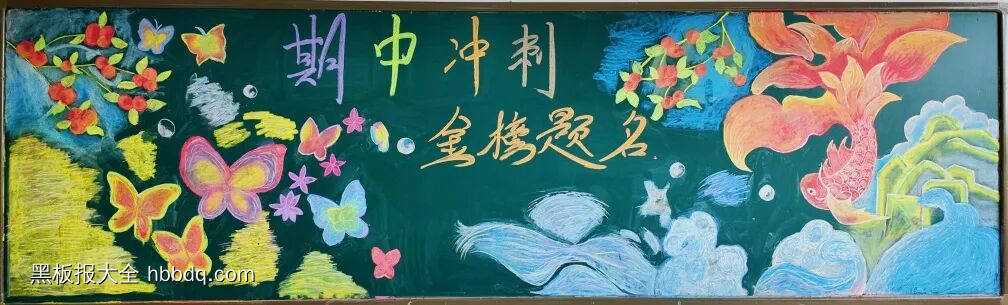 期中冲刺
金榜题名
黑板报大全 hbbdq.com